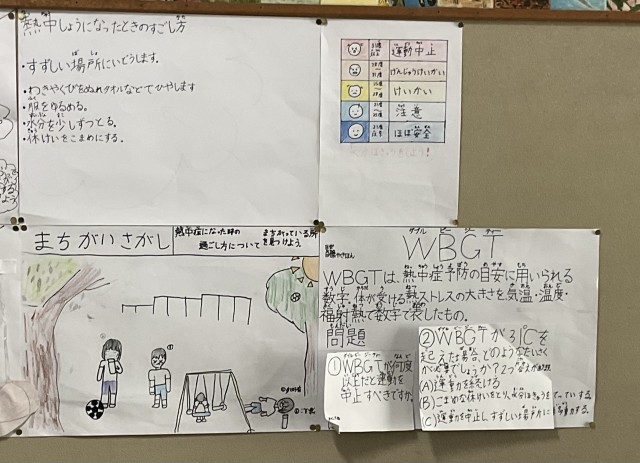 熱中しょうになったときのすごし方
・すずしい場所にいどうします。
・わきやくびをぬれタオルなどでひやします
・服をゆるめる。
・水分を少しずつとる。
・休けいをこまめにする。
運動中止
げんじゅうけいかい
けいかい
注意
ほぼ安全
まちがいさがし
熱中症になった時の
過ごし方について
まちがっている所
を見つけよう。
WBGT
WBGTは、熱中症予防の目安に用いられる
数字。体が受ける熱ストレスの大きさを気温・湿度・
輻射熱で数字で表したもの。
問題
①WBGTが何度
以上だと運動を
中止すべきですか。
②WBGTが31℃を
超えた場合、どのような
が必要でしょうか？2つ
(A)運動を続ける
(B)こまめな休けいをとり、水分
(C)運動を中止し、すずしい場所に